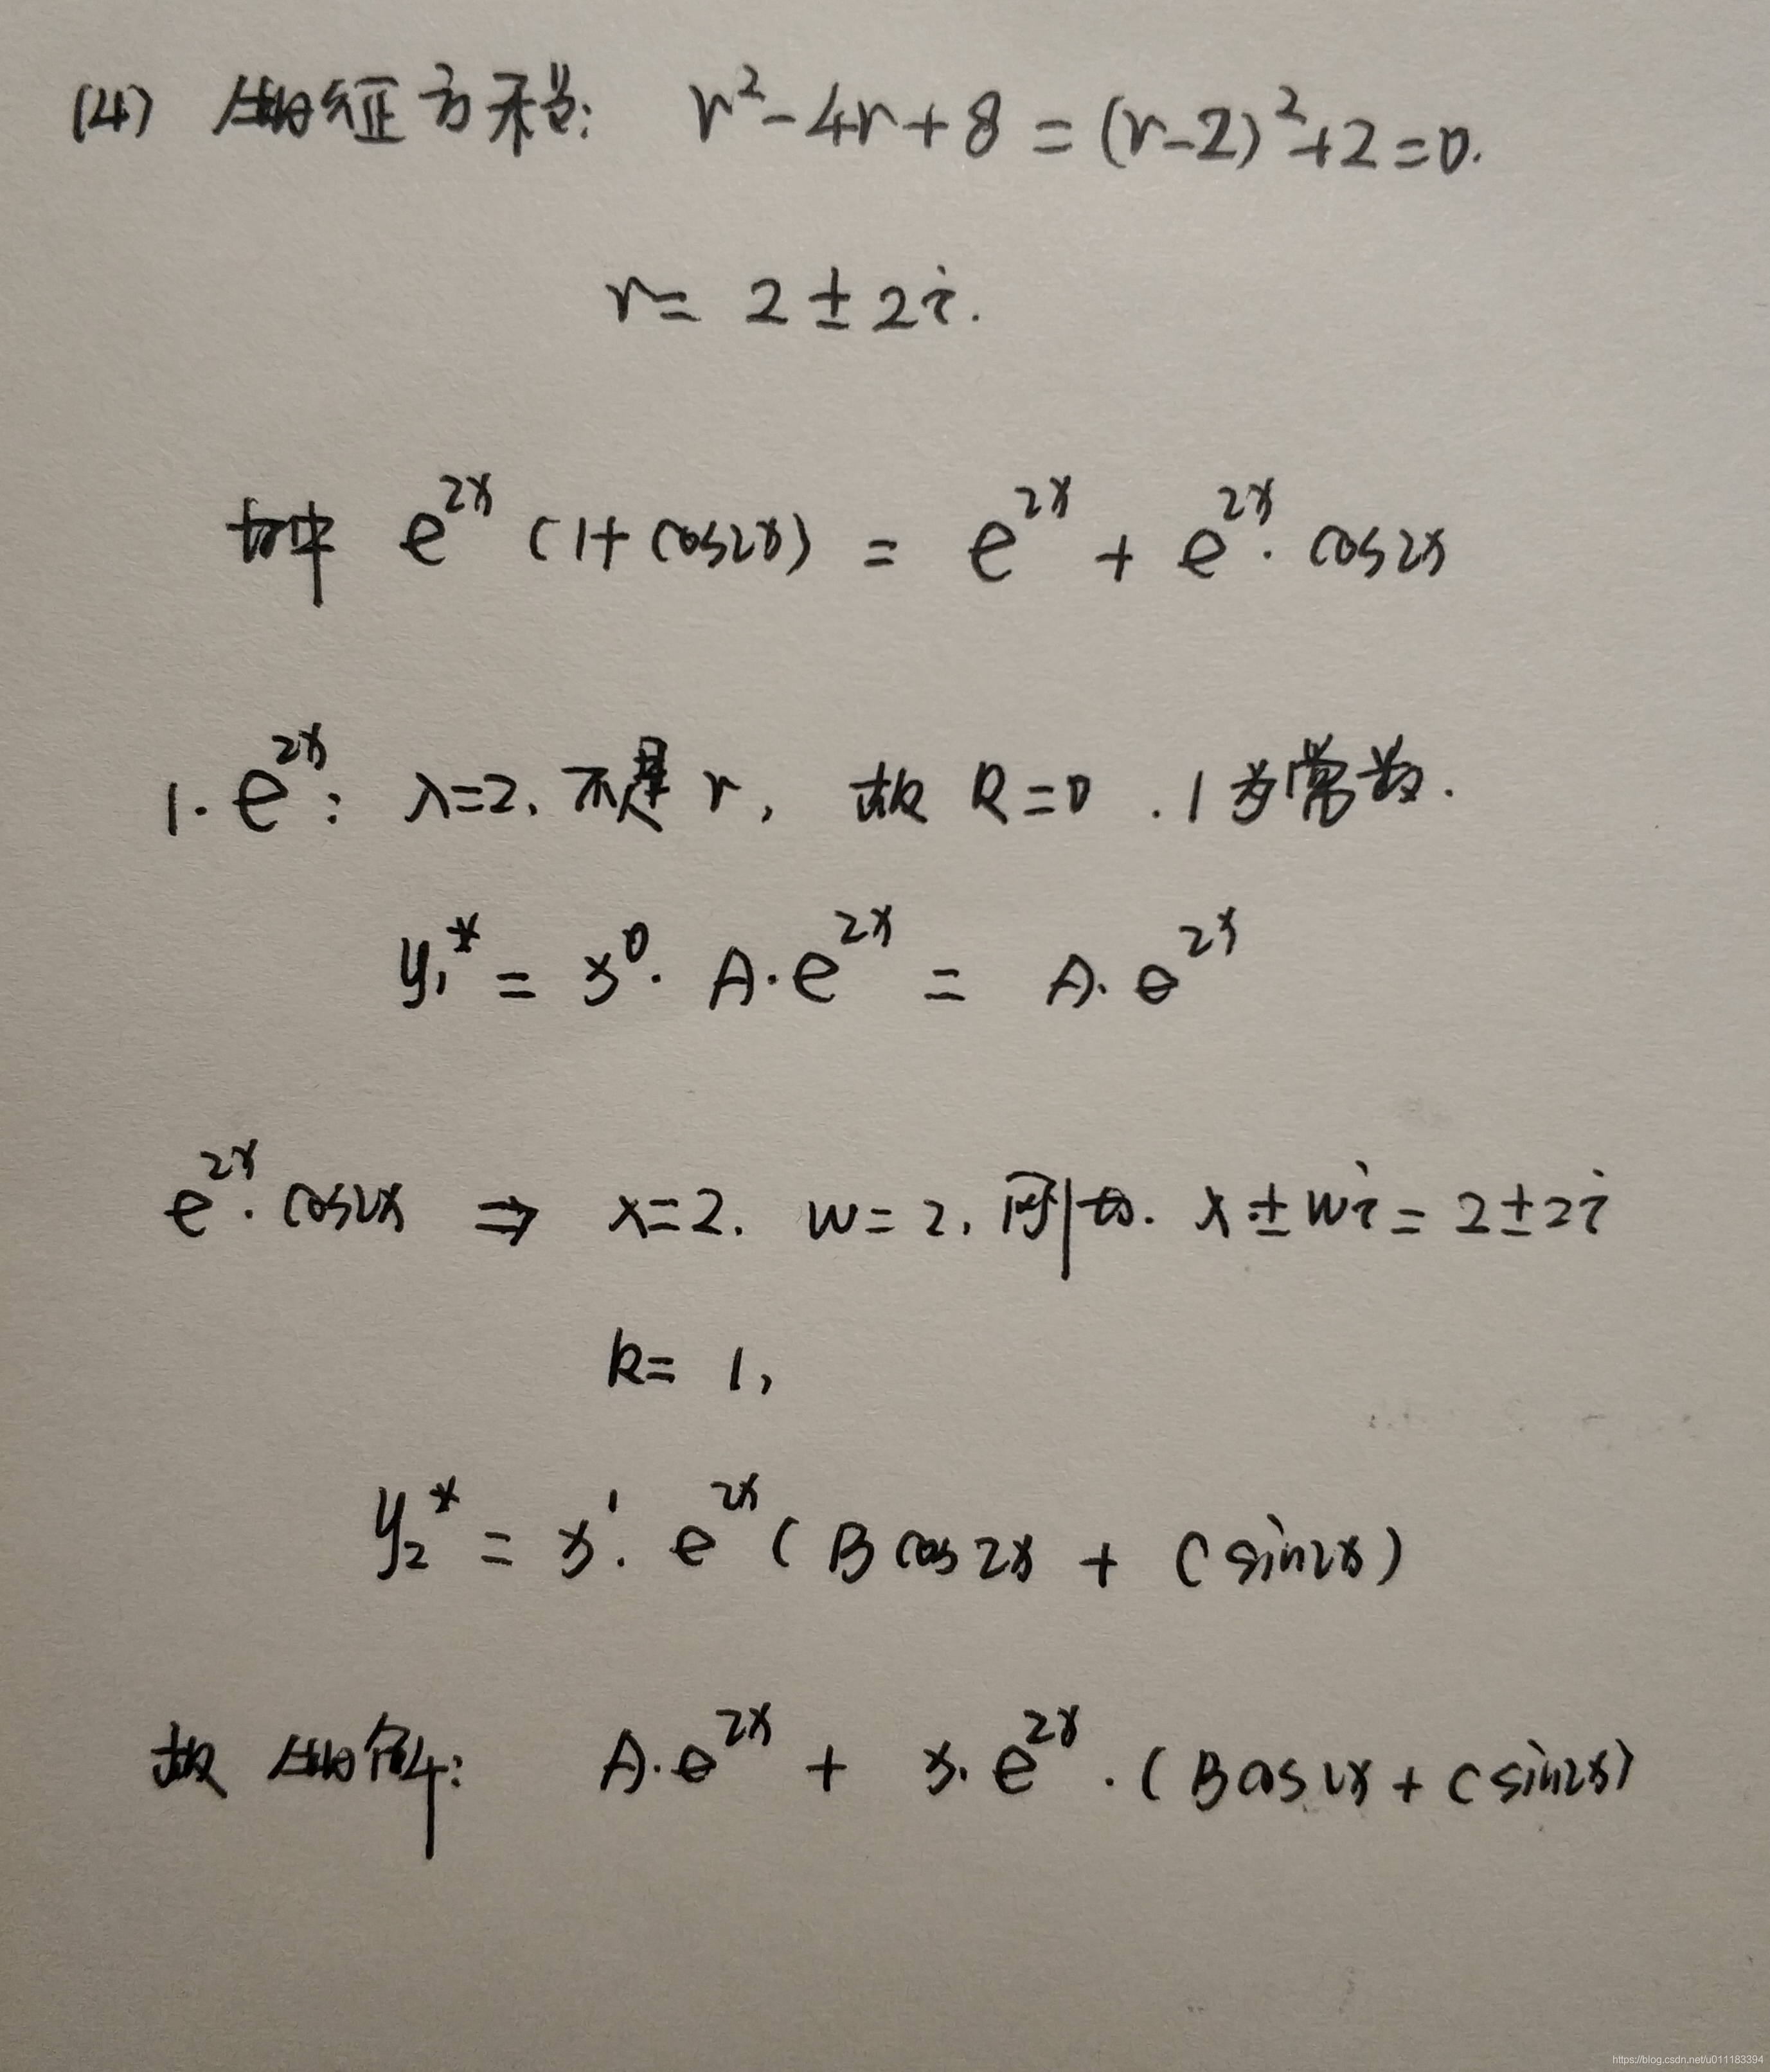 (4) 特征方程: r²-4r+8=(r-2)²+2=0.
r= 2±2i.
其中 e^{2x}(1+cos2x) = e^{2x} + e^{2x}·cos2x
1. e^{2x}: λ=2, 不是r, 故 k=0. 1为常数.
y₁* = x⁰·A·e^{2x} = A·e^{2x}
e^{2x}·cos2x ⇒ λ=2. w=2, λ±wi=2±2i
k= 1,
y₂* = x¹·e^{2x}(Bcos2x + Csin2x)
故 特解: A·e^{2x} + x·e^{2x}·(Bcos2x + Csin2x)
https://blog.csdn.net/u011183394